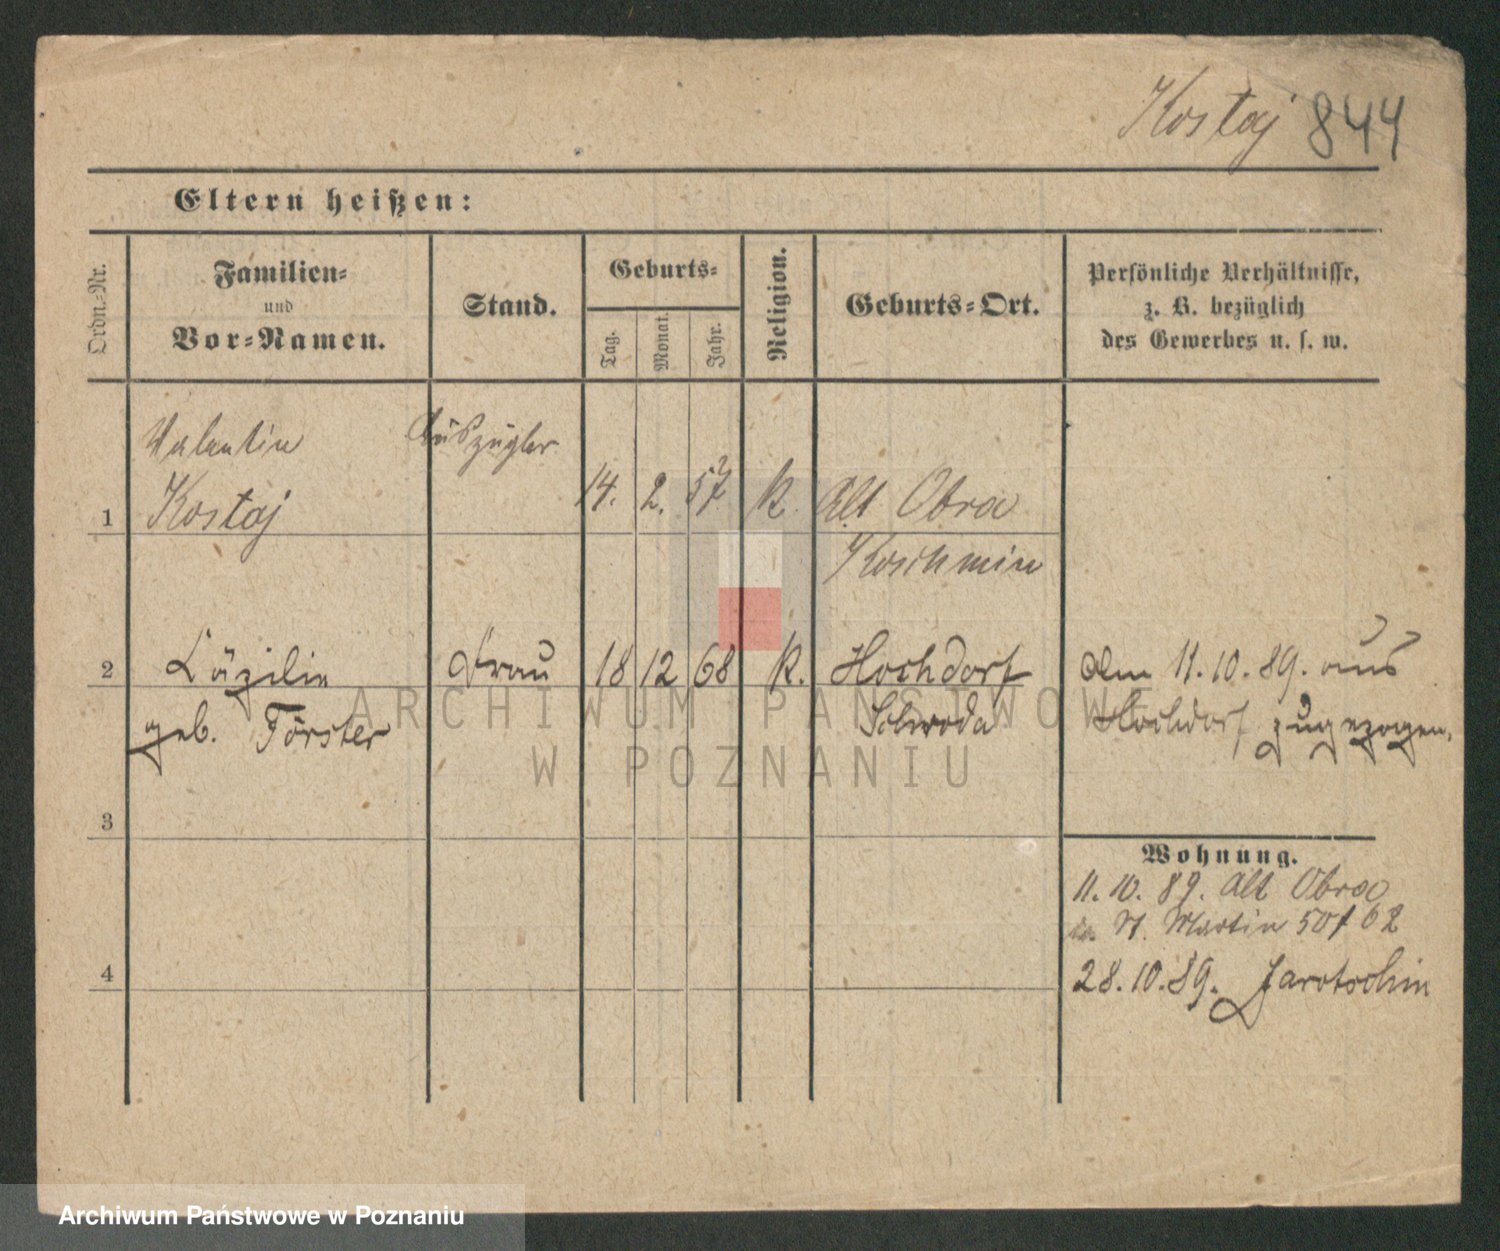 Kostaj 844
Eltern heißen:
Ordn.-Nr.
Familien-
und
Vor-Namen.
Stand.
Geburts-
Tag.
Monat.
Jahr.
Religion.
Geburts-Ort.
Persönliche Verhältnisse,
z. B. bezüglich
des Gewerbes u. s. w.
Valentin Auszügler
1 Kostaj 14. 2. 57 k. Alt Obra
Koschmin
2 Cäzilie Frau 18 12 68 k. Hochdorf Am 11.10.89. aus
geb. Förster Schroda Hochdorf zugezogen.
3
Wohnung.
11.10.89. Alt Obra
St. Martin 50/62
4 28.10.89. Jarotschin
ARCHIWUM PAŃSTWOWE
W POZNANIU
Archiwum Państwowe w Poznaniu